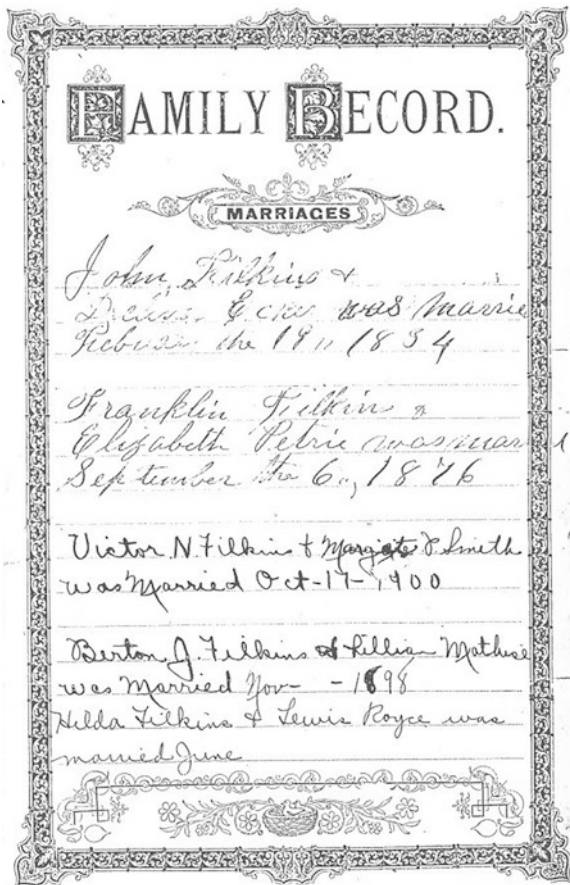 FAMILY RECORD.
MARRIAGES
John Filkins &
Ecker was Marrie
the 19,, 1834
Franklin Filkin &
Elizabeth Petrie was mar
September the 6,, 1876
Victor N. Filkins & P. Smith
was Married Oct-17-1900
Berton J. Filkins & Lillian
was Married Nov- -1898
Hilda Filkins & Lewis Royce was
married June